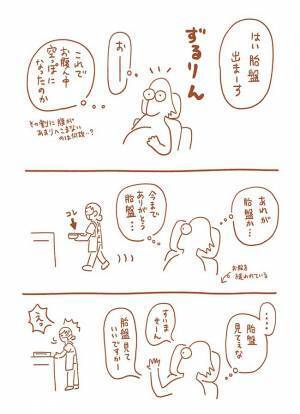 はい胎盤
出まーす
ずるりん
おー
これで
お腹ん中
空っぽに
なったのか
その割に腹が
あまりへこまない
のは何故…?
あれが
胎盤か…
今まで
ありがとう
胎盤…
コレ
お股を
縫われている
……
胎盤
見てぇな
すいま
せーん
胎盤見て
いいですかー
え。